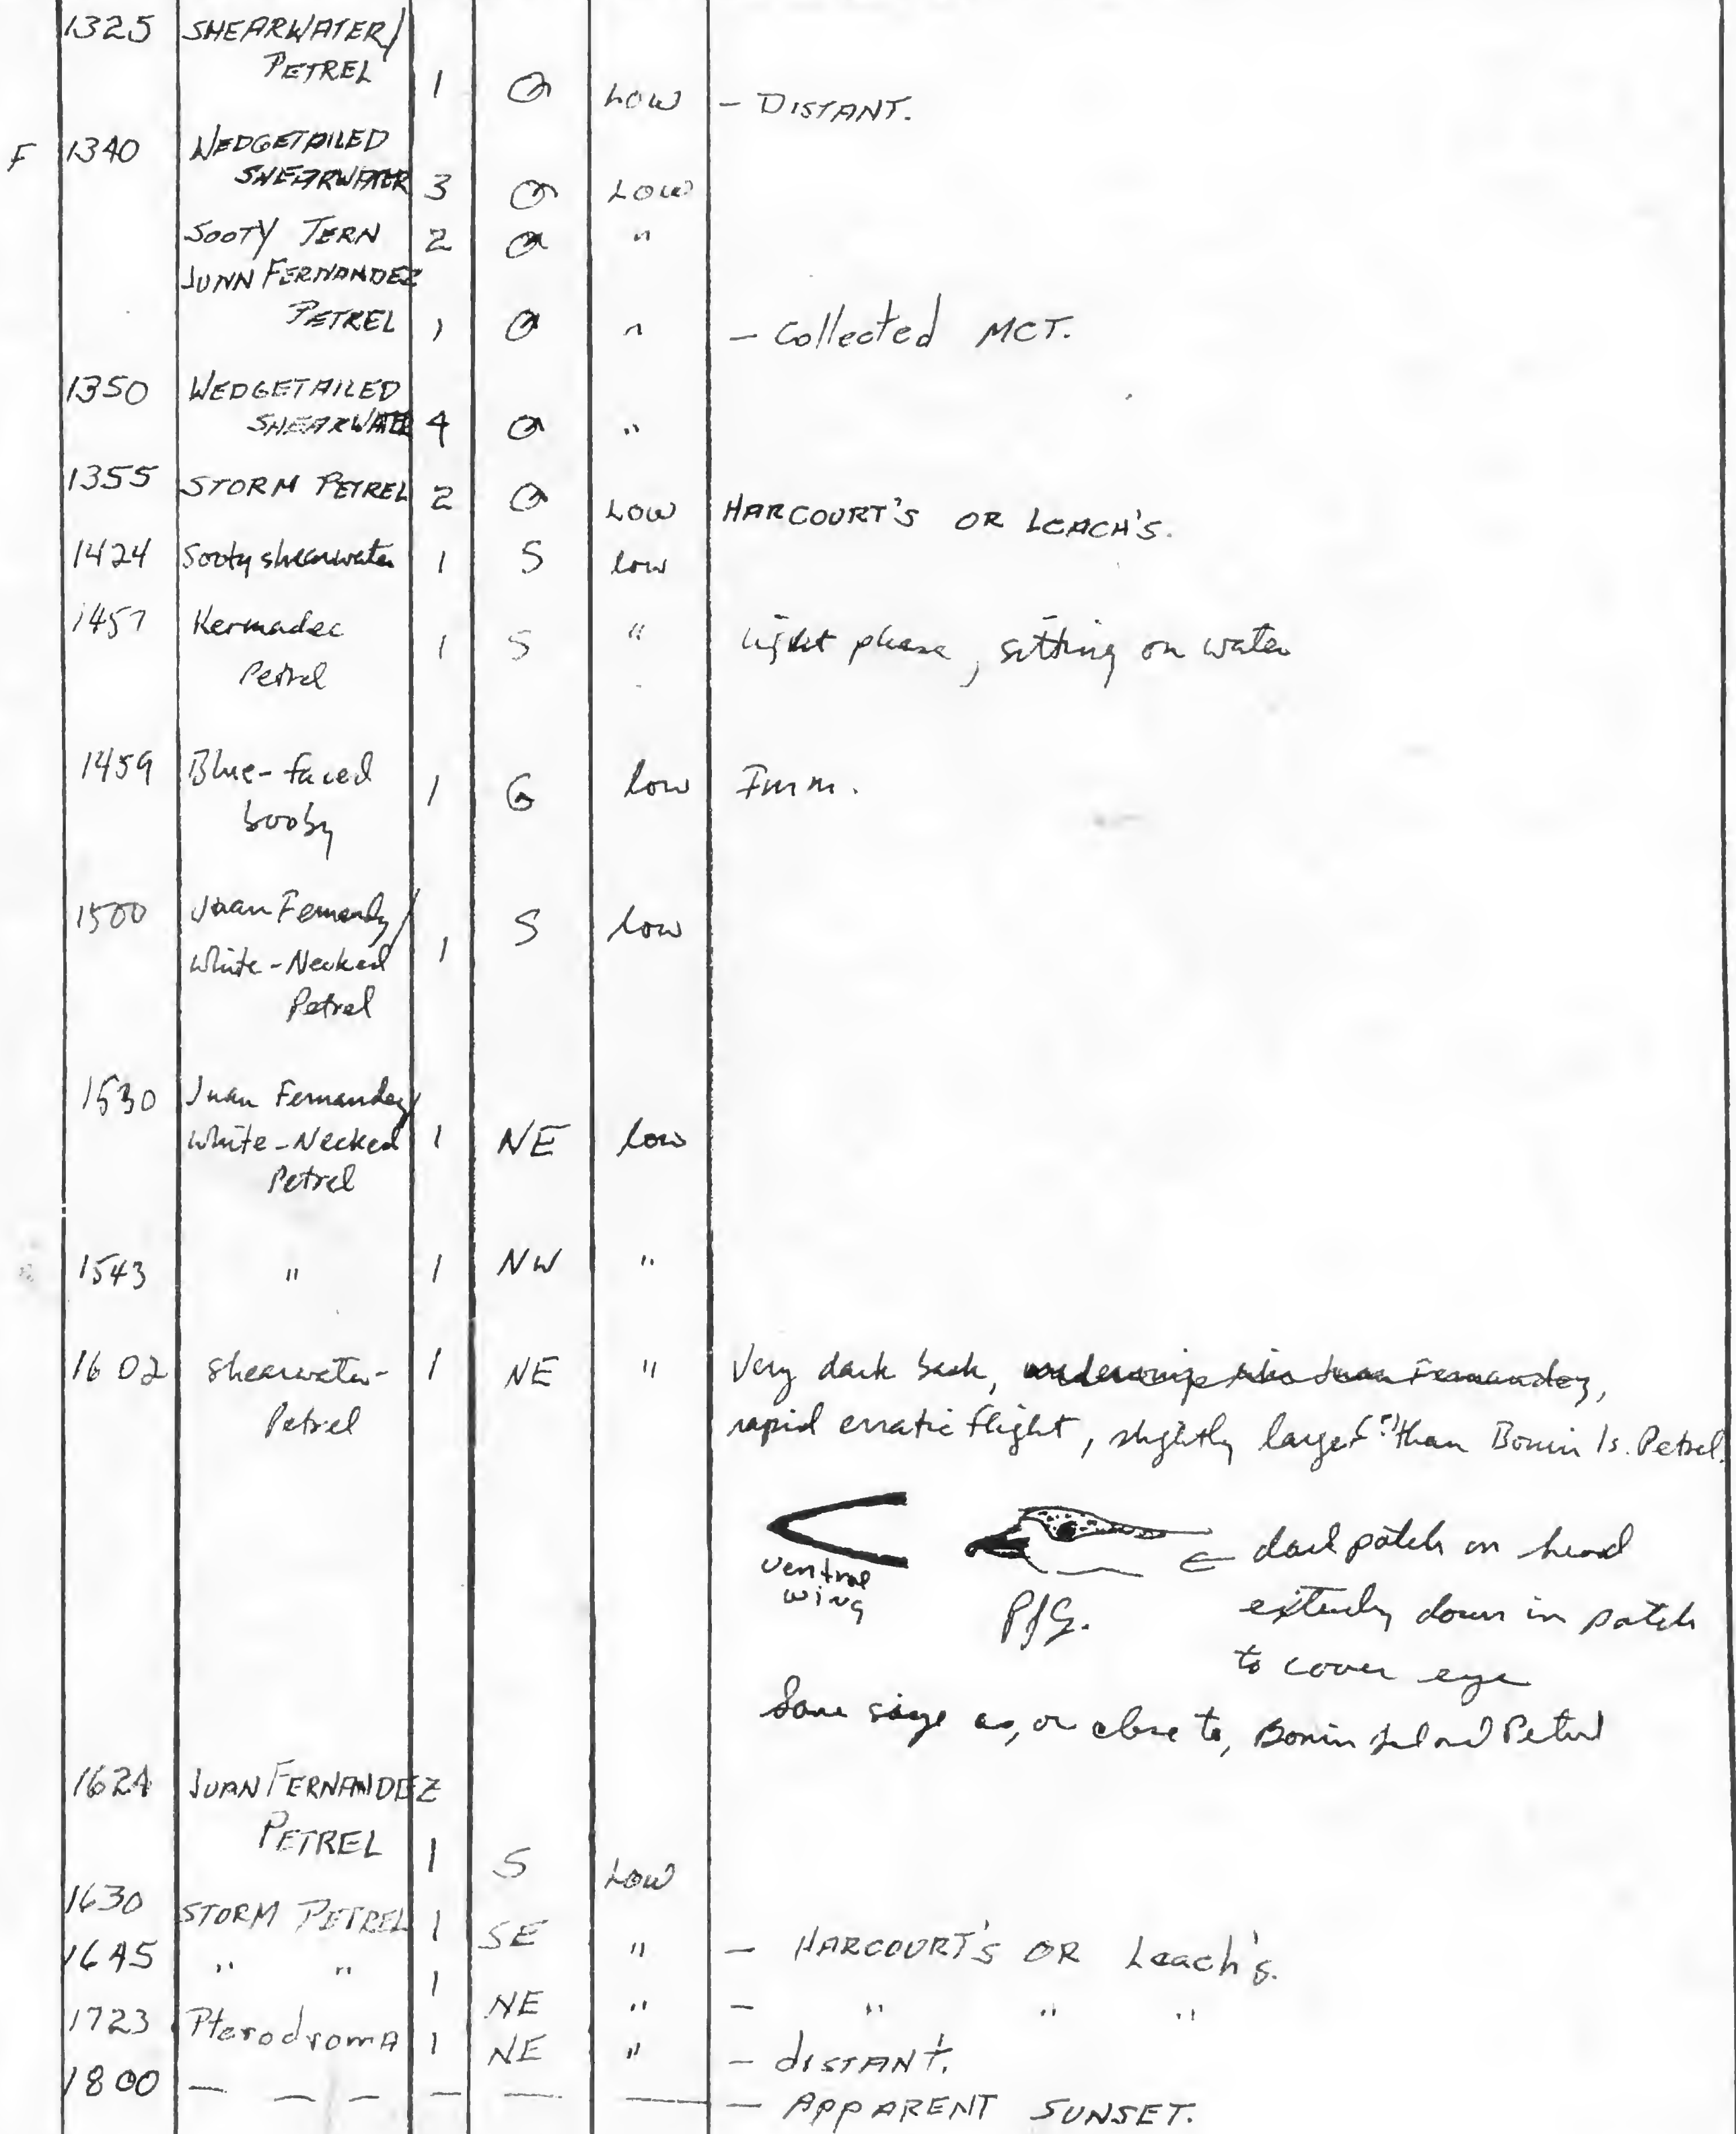 1325 SHEARWATER/
PETREL 1 LOW - DISTANT.
F 1340 WEDGETAILED
SHEARWATER 3 LOW
SOOTY TERN 2 "
JUAN FERNANDEZ
PETREL 1 " - Collected MCT.
1350 WEDGETAILED
SHEARWATER 4 "
1355 STORM PETREL 2 LOW HARCOURT'S OR LEACH'S.
1424 Sooty shearwater 1 S low
1457 Kermadec 1 S " light phase, sitting on water
Petrel
1459 Blue-faced 1 G low Imm.
booby
1500 Juan Fernandez/ 1 S low
White-Necked
Petrel
1530 Juan Fernandez/
White-Necked 1 NE low
Petrel
1543 " 1 NW "
1602 shearwater- 1 NE " Very dark back, underwing like Juan Fernandez,
Petrel rapid erratic flight, slightly larger (?) than Bonin Is. Petrel.
ventral
wing
PJG.
← dark patch on head
extending down in patch
to cover eye
Same size as, or close to, Bonin Island Petrel
1624 JUAN FERNANDEZ
PETREL 1 S LOW
1630 STORM PETREL 1 SE " - HARCOURT'S OR Leach's.
1645 " " 1 NE " - " " "
1723 Pterodroma 1 NE " - dISTANt.
1800 — — — — — — — APPARENT SUNSET.